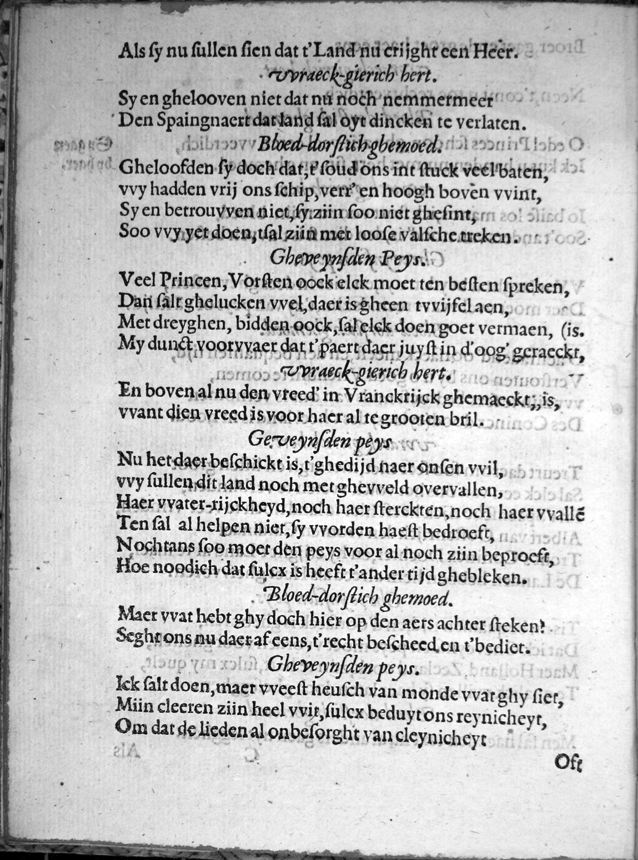 Als sy nu sullen sien dat t'Land nu crijght een Heer.
vvraeck-gierich hert.
Sy en ghelooven niet dat nu noch nemmermeer
Den Spaingnaert dat land sal oyt dincken te verlaten.
Bloed-dorstich ghemoed.
Gheloofden sy doch dat, t'soud ons int stuck veel baten,
vvy hadden vrij ons schip, verr' en hoogh boven vvint,
Sy en betrouvven niet, sy ziin soo niet ghesint,
Soo vvy yet doen, tsal ziin met loose valsche treken.
Gheveynsden Peys.
Veel Princen, Vorsten oock elck moet ten besten spreken,
Dan salt ghelucken vvel, daer is gheen tvvijfel aen,
Met dreyghen, bidden oock, sal elck doen goet vermaen, (is.
My dunct voorvvaer dat t'paert daer juyst in d'oog' geraeckt,
vvraeck-gierich hert.
En boven al nu den vreed' in Vranckrijck ghemaeckt, is,
vvant dien vreed is voor haer al te grooten bril.
Geveynsden peys
Nu het daer beschickt is, t'ghedijd naer onsen vvil,
vvy sullen dit land noch met ghevveld overvallen,
Haer vvater-rijckheyd, noch haer sterckten, noch haer vvallē
Ten sal al helpen niet, sy vvorden haest bedroeft,
Nochtans soo moet den peys voor al noch ziin beproeft,
Hoe noodich dat sulcx is heeft t'ander tijd ghebleken.
Bloed-dorstich ghemoed.
Maer vvat hebt ghy doch hier op den aers achter steken?
Seght ons nu daer af eens, t'recht bescheed en t'bediet.
Gheveynsden peys.
Ick salt doen, maer vveest heusch van monde vvat ghy siet,
Miin cleeren ziin heel vvit, sulcx beduyt ons reynicheyt,
Om dat de lieden al onbesorght van cleynicheyt
Oft